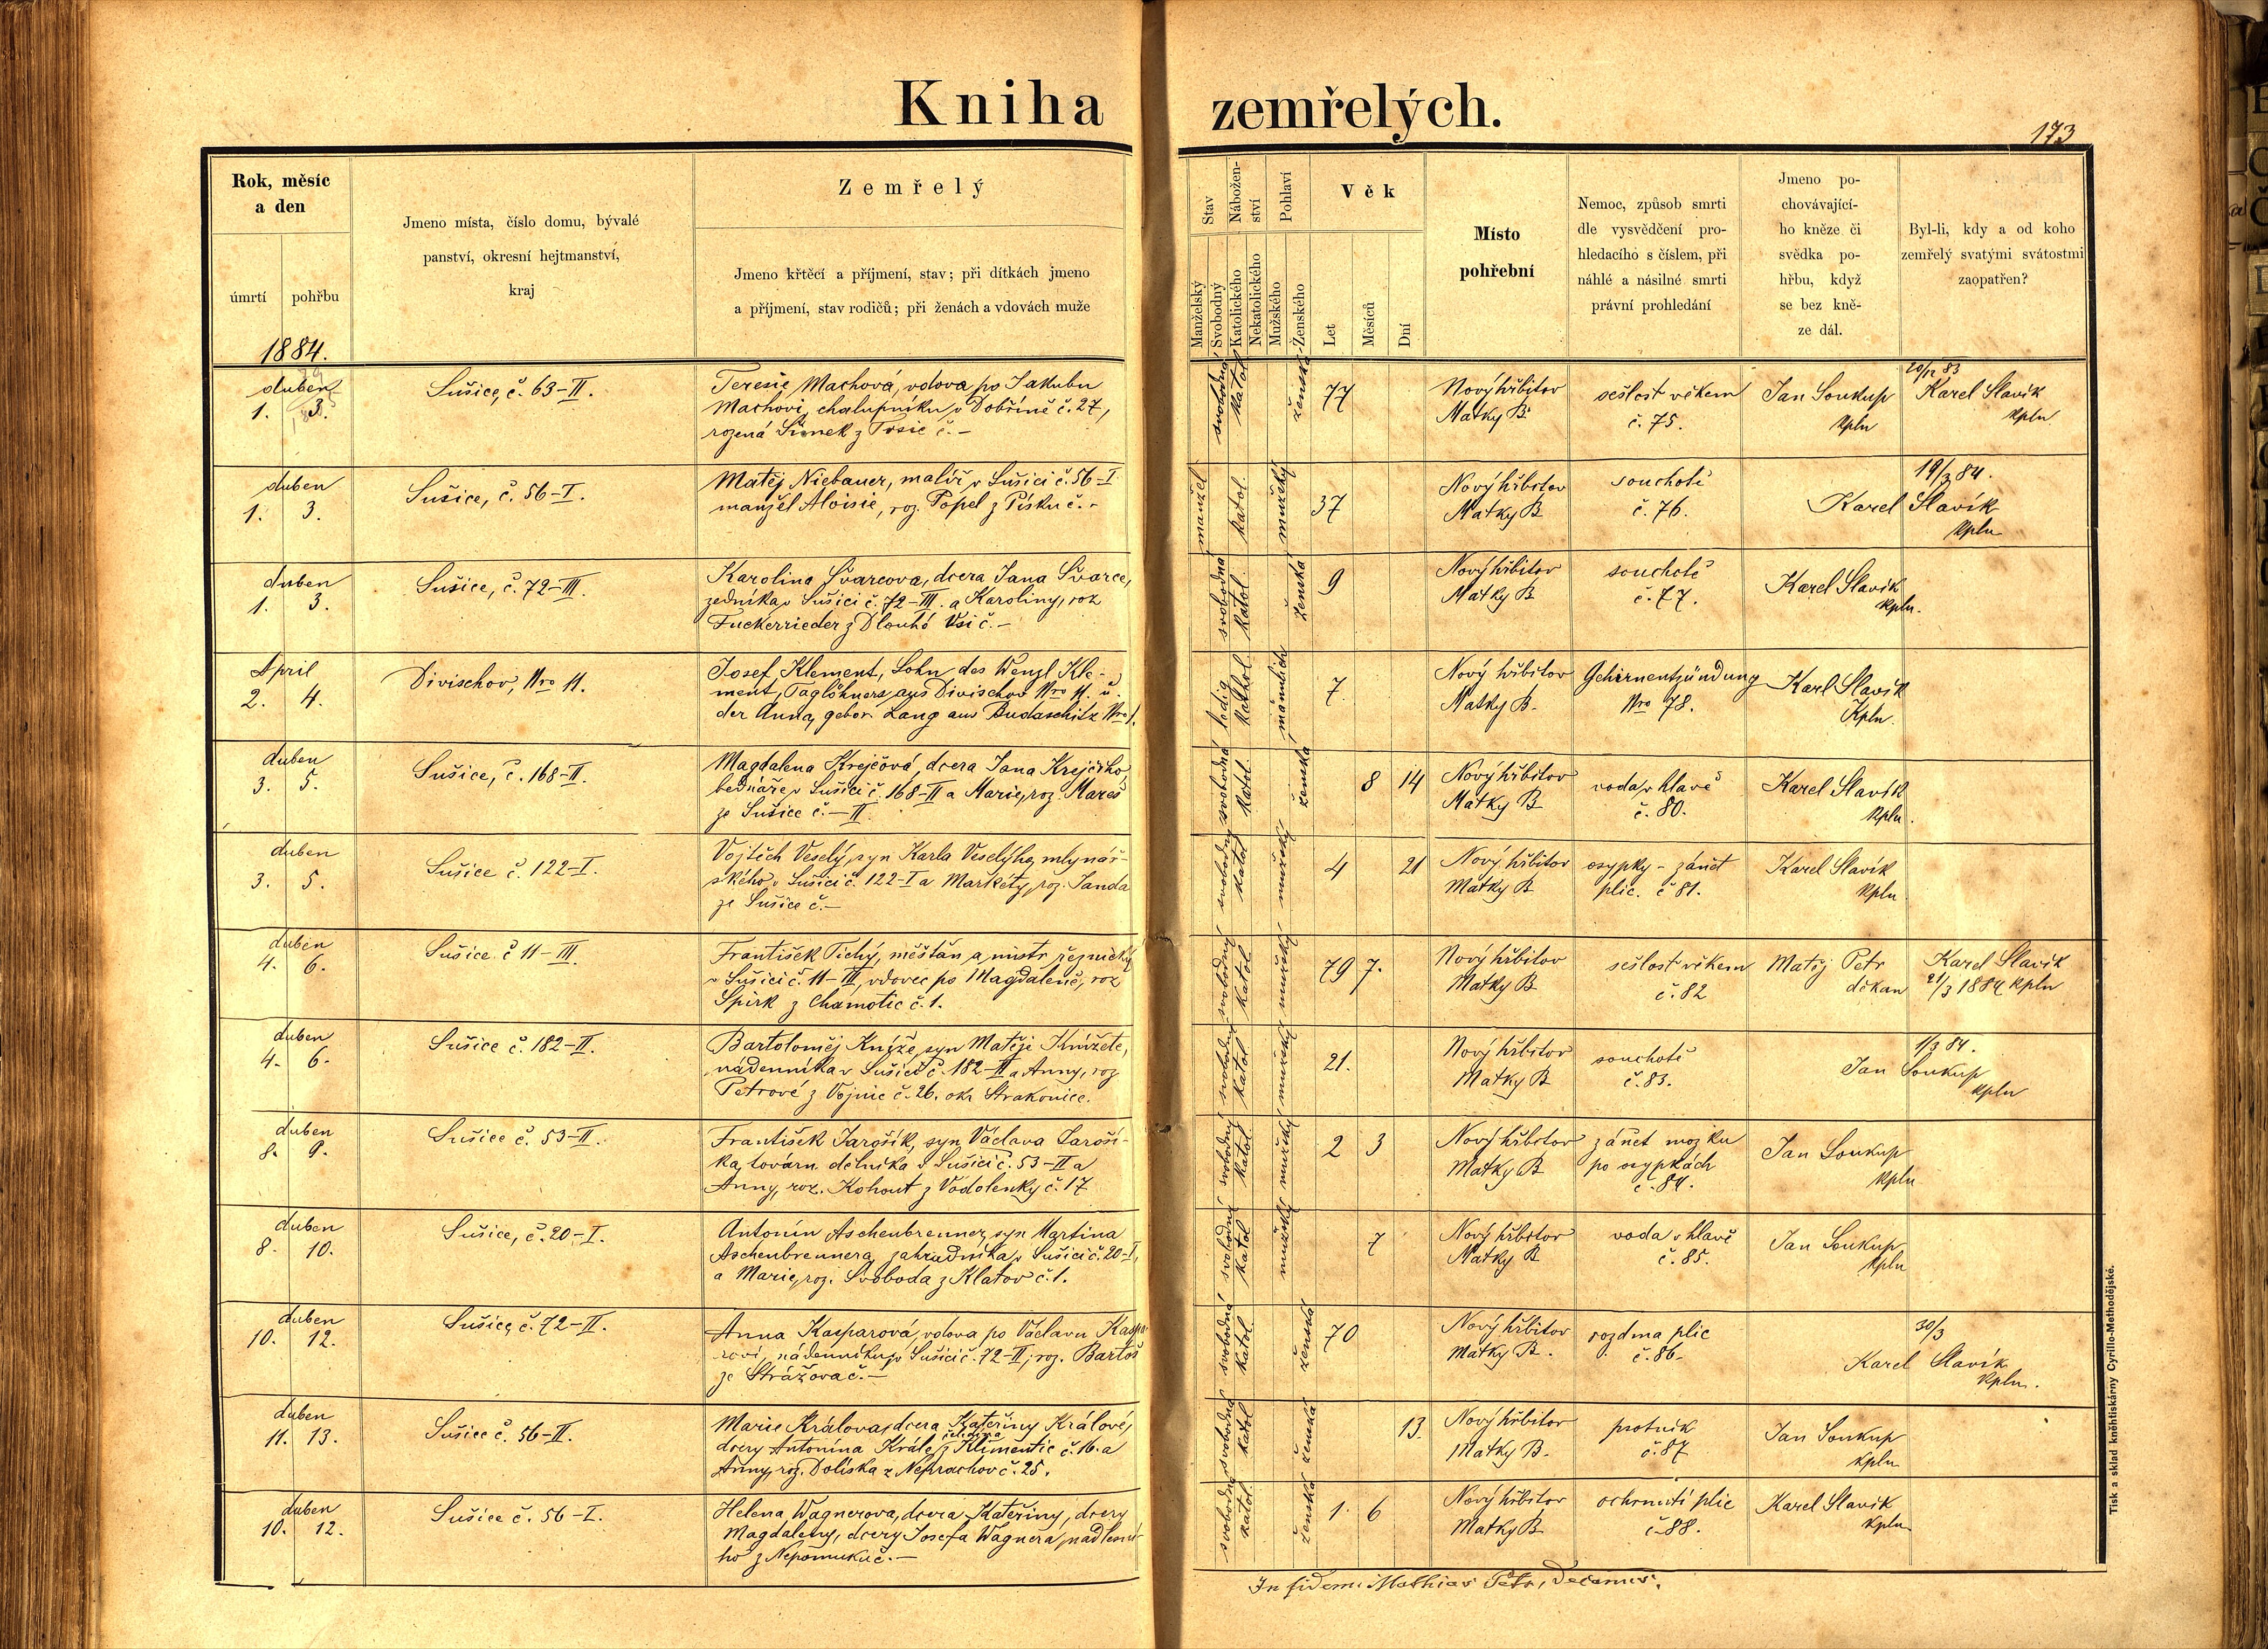 Kniha zemřelých.
173
Rok, měsíc
a den
úmrtí
pohřbu
1884.
Jmeno místa, číslo domu, bývalé
panství, okresní hejtmanství,
kraj
Zemřelý
Jmeno křtěcí a příjmení, stav; při dítkách jmeno
a příjmení, stav rodičů; při ženách a vdovách muže
Stav
Manželský
Svobodný
Nábožen-
ství
Katolického
Nekatolického
Pohlaví
Mužského
Ženského
Věk
Let
Měsíců
Dní
Místo
pohřební
Nemoc, způsob smrti
dle vysvědčení pro-
hledacího s číslem, při
náhlé a násilné smrti
právní prohledání
Jmeno po-
chovávající-
ho kněze či
svědka po-
hřbu, když
se bez kně-
ze dál.
Byl-li, kdy a od koho
zemřelý svatými svátostmi
zaopatřen?
duben
1. 3.
Sušice, č. 63-II.
Teresie Machová, vdova po Jakubu
Machovi, chalupníku v Dobříně č. 27,
rozená Šimek z č. –
svobodná
katol.
ženská
77
Nový hřbitov
Matky B.
sešlost věkem
č. 75.
Jan Soukup
kpln
20/12 83
Karel Slavík
kpln
duben
1. 3.
Sušice, č. 56-I.
Matěj Niebauer, malíř v Sušici č. 56-I
manžel Aloisie, roz. Popel z Písku č. -
manžel.
katol.
mužský
37
Nový hřbitov
Matky B
souchotě
č. 76.
19/3 84.
Karel Slavík
kpln
duben
1. 3.
Sušice, č. 72-III.
Karolina Švarcova, dcera Jana Švarce,
zedníka v Sušici č. 72-III. a Karoliny, roz
Fuckerrieder z Dlouhé Vsi č. –
svobodná
katol.
ženská
9
Nový hřbitov
Matky B
souchotě
č. 77.
Karel Slavík
kpln.
April
2. 4.
Divischov, Nro 11.
Josef Klement, Sohn des Wenzl Kle-
ment, Taglöhners aus Divischov Nro 11. u.
der Anna, gebor. Lang aus Budaschitz Nro 1.
ledig
kathol.
männlich
7
Nový hřbitov
Matky B.
Gehirnentzündung
Nro 78.
Karl Slavík
Kpln.
duben
3. 5.
Sušice, č. 168-II.
Magdalena Krejčová, dcera Jana Krejčího,
bednáře v Sušici č. 168-II a Marie, roz. Mareš
ze Sušice č. – II.
svobodná
katol.
ženská
8 14
Nový hřbitov
Matky B
voda v hlavě
č. 80.
Karel Slavík
kpln.
duben
3. 5.
Sušice č. 122-I.
Vojtěch Veselý, syn Karla Veselýho, mlynář-
ského v Sušici č. 122-I a Markéty, roz. Janda
ze Sušice č. –
svobodný
katol
mužský
4 21
Nový hřbitov
Matky B
osypky - zánět
plic. č 81.
Karel Slavík
kpln
duben
4. 6.
Sušice č 11-III.
František Tichý, měšťan a mistr řeznický
v Sušici č. 11-III, vdovec po Magdaleně, roz
Spirk z Chamotic č. 1.
svobodný
katol
mužský
79 7.
Nový hřbitov
Matky B
sešlost věkem
č. 82
Matěj Petr
děkan
Karel Slavík
21/3 1884 kpln
duben
4. 6.
Sušice č. 182-II.
Bartoloměj Kníže, syn Matěje Knížete,
nádenníka v Sušici č. 182-II a Anny, roz
Petrové z Vojnic č. 26. okr Strakonice.
svobodný
katol
mužský
21.
Nový hřbitov
Matky B
souchotě
č. 83.
1/3 84.
Jan Soukup
kpln
duben
8. 9.
Sušice č. 53-II.
František Jarošík, syn Václava Jaroší-
ka, továrn. dělníka v Sušici č. 53-II a
Anny, roz. Kohout z Vodolenky č. 17
svobodný
katol.
mužský
2 3
Nový hřbitov
Matky B
zánět mozku
po osypkách
č. 84.
Jan Soukup
kpln
duben
8. 10.
Sušice, č. 20-I.
Antonín Aschenbrenner, syn Martina
Aschenbrennera, zahradníka v Sušici č. 20-I,
a Marie, roz. Svoboda z Klatov č. 1.
svobodný
katol
mužský
7
Nový hřbitov
Matky B
voda v hlavě
č. 85.
Jan Soukup
kpln
duben
10. 12.
Sušice, č. 72-II.
Anna Kasparová, vdova po Václavu Kaspa-
rovi, nádenníku v Sušici č. 72-II, roz. Bartoš
ze Strážova č. –
svobodná
katol.
ženská
70
Nový hřbitov
Matky B.
rozdma plic
č. 86-
30/3
Karel Slavík
kpln.
duben
11. 13.
Sušice č. 56-II.
Marie Králova, dcera Kateřiny Králové,
dcery Antonína Krále, z Klimentic č. 16. a
Anny, roz. Doliska z Neprachov č. 25.
svobodná
katol
ženská
13.
Nový hřbitov
Matky B.
psotník
č. 87
Jan Soukup
kpln
duben
10. 12.
Sušice č. 56-I.
Helena Wagnerova, dcera Kateřiny, dcery
Magdaleny, dcery Josefa Wagnera, nadlesní-
ho z Nepomuku č. –
svobodná
katol
ženská
1. 6
Nový hřbitov
Matky B
ochrnutí plic
č. 88.
Karel Slavík
kpln.
In fidem: Mathias Petr, Decanus.
Tisk a sklad kněhtiskárny Cyrillo-Methodějské.